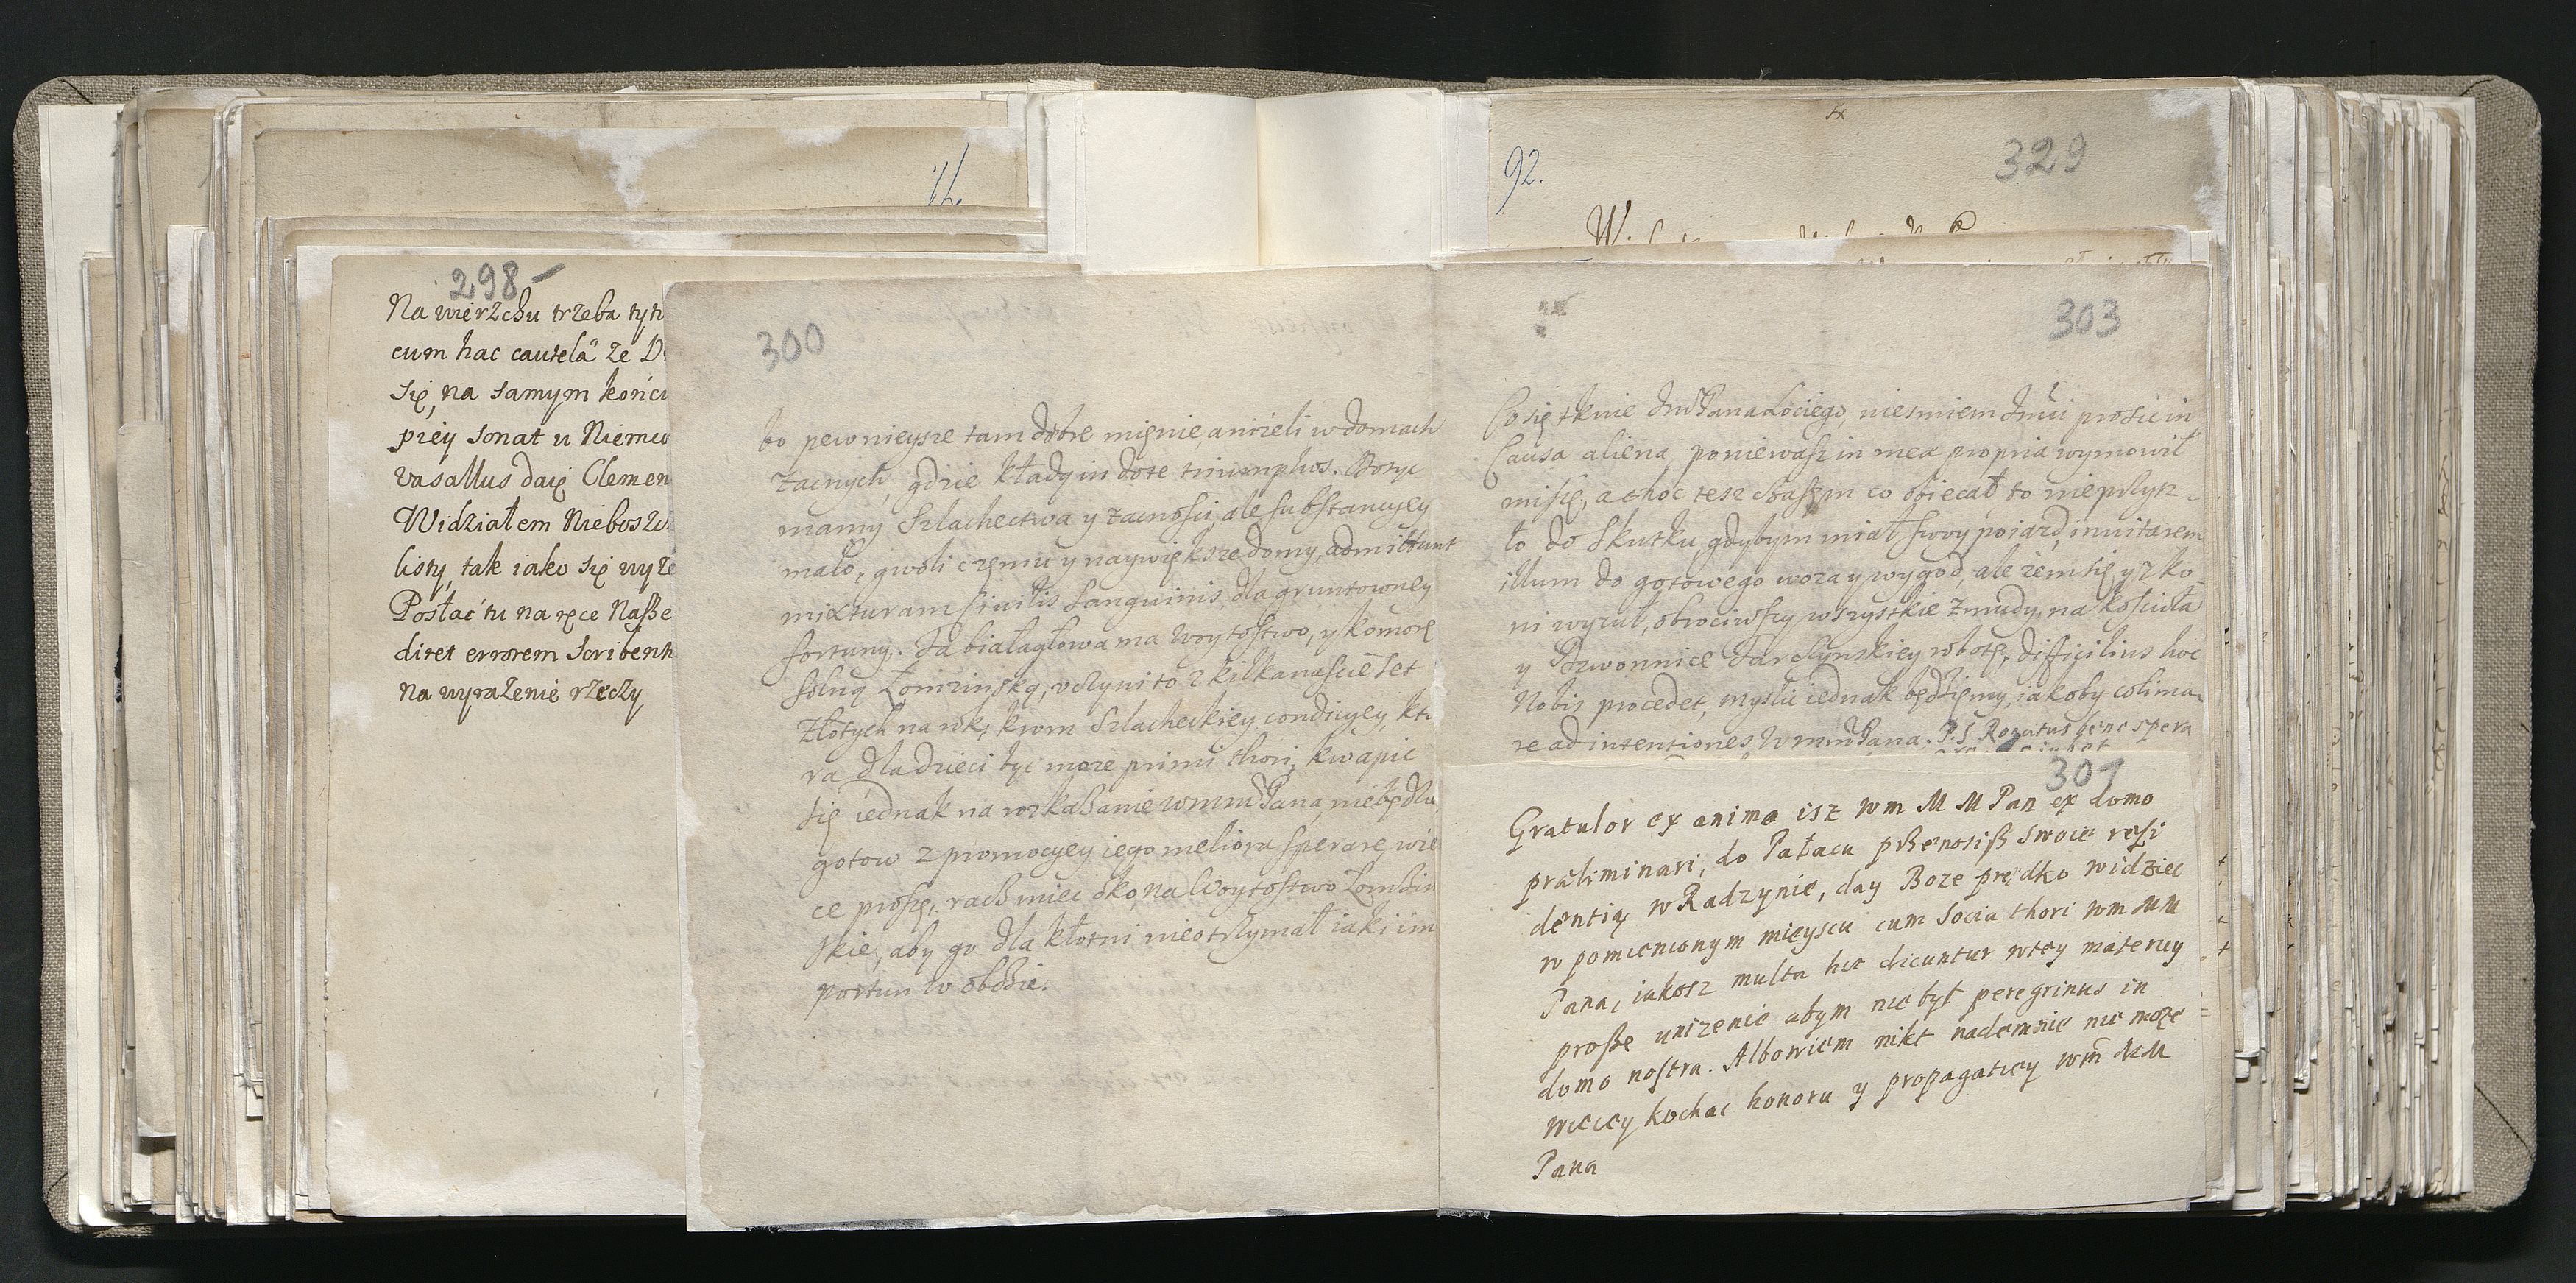 298-
Na wierzchu trzeba tyt
cum hac cautelâ ze D
się, na samym końcu
piéy sonat u Niemco
vasallus daię Clemen
Widziałem Nieboszcz
listy, tak iako się wyże
Posłać tu na ręce Naße
diret errorem scribent
na wyrażenie rzeczy
300
to pewnieysze tam dobre mienie, aniżeli w domach
zacnych, gdzie kładą in dote triumphos. Dosyc
mamy Szlachectwa y zacnosci, ale substancyey
mało, gwoli czemu y naywiększe domy, admittunt
mixturam civilis sanguinis, dla gruntowney
fortuny. Ta białagłowa ma woytostwo, y komorę
solną Łomzinską, uczyni to z kilkanascie set
złotych na rok, krom Szlacheckiey condicyey, kto
ra dla dzieci byc moze primi thori, kwapic
się iednak na roskazanie wmm Pana, nie będę
gotow z promocyey iego meliora sperare, wie
ce proszę, racz miec oko, na Woytostwo Lomzin
skie, aby go dla kłotni nieotrzymał iaki im
portun w obozie.
92.
329
303
Co się tknie Jmć Pana Lociego, niesmiem Jmści prosić in
Causa aliena, poniewasz in mea propria wymowił
mi się, a choc tesz czasem co obiecał, to nieprzysz
ło do skutku, gdybym miał swoy poiazd, invitarem
illum do gotowego woza y wygod, ale zem się y z ko
ni wyzuł, obrociwszy wszystkie zmudy, na koscioła
y Dzwonnice Tarczynskiey robotę, difficilius hoc
Nobis procedet, myslic iednak będziemy, iakoby colima
re ad intentiones Wmm Pana. P.S. Rogatus bene spera
307
Gratulor ex animo isz wm M M Pan ex domo
præliminari, do Pałacu pßenosiß swoie resi
dentią w Radzynie, day Boze prędko widziec
w pomienionym mieyscu cum socia thori wm MM
Pana, iakosz multa hic dicuntur w tey materiey
proße unizenie abym nie był peregrinus in
domo nostra. Albowiem nikt nademnie nie moze
wiecey kochac honoru y propagatiey wm MM
Pana